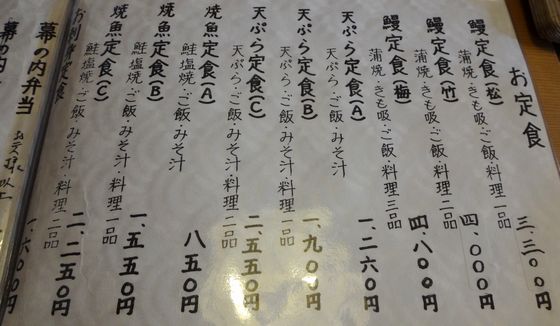 お定食
鰻定食(松)
蒲焼・きも吸・ご飯・料理一品
三、三〇〇円
鰻定食(竹)
蒲焼・きも吸・ご飯・料理二品
四、〇〇〇円
鰻定食(梅)
蒲焼・きも吸・ご飯・料理三品
四、八〇〇円
天ぷら定食(A)
天ぷら・ご飯・みそ汁
一、二六〇円
天ぷら定食(B)
天ぷら・ご飯・みそ汁・料理一品
一、九〇〇円
天ぷら定食(C)
天ぷら・ご飯・みそ汁・料理二品
二、五五〇円
焼魚定食(A)
鮭塩焼・ご飯・みそ汁
八五〇円
焼魚定食(B)
鮭塩焼・ご飯・みそ汁・料理一品
一、五五〇円
焼魚定食(C)
鮭塩焼・ご飯・みそ汁・料理二品
二、二五〇円
幕の内弁当
一、六〇〇円
幕の内